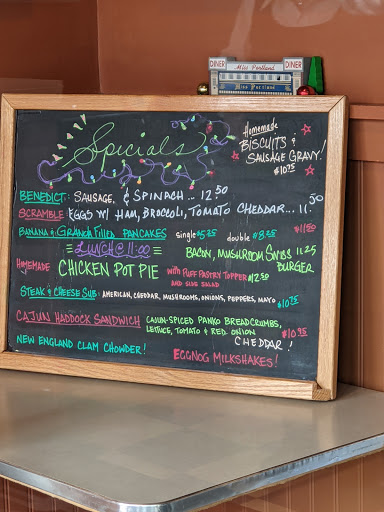 DINER Miss Portland DINER
Miss Portland
Specials
Homemade
BISCUITS &
SAUSAGE GRAVY!
$10.75
BENEDICT: SAUSAGE & SPINACH... 12.50
SCRAMBLE EGGS W/ HAM, BROCCOLI, TOMATO CHEDDAR... 11.50
BANANA & GRANOLA FILLED PANCAKES single $5.75 double $8.25
LUNCH @ 11:00
BACON, MUSHROOM SWISS 11.25
BURGER
HOMEMADE CHICKEN POT PIE WITH PUFF PASTRY TOPPER $12.50
AND SIDE SALAD
STEAK & CHEESE SUB: AMERICAN, CHEDDAR, MUSHROOMS, ONIONS, PEPPERS, MAYO $10.75
CAJUN HADDOCK SANDWICH CAJUN-SPICED PANKO BREADCRUMBS,
LETTUCE, TOMATO & RED ONION $10.95
CHEDDAR!
NEW ENGLAND CLAM CHOWDER!
EGGNOG MILKSHAKES!